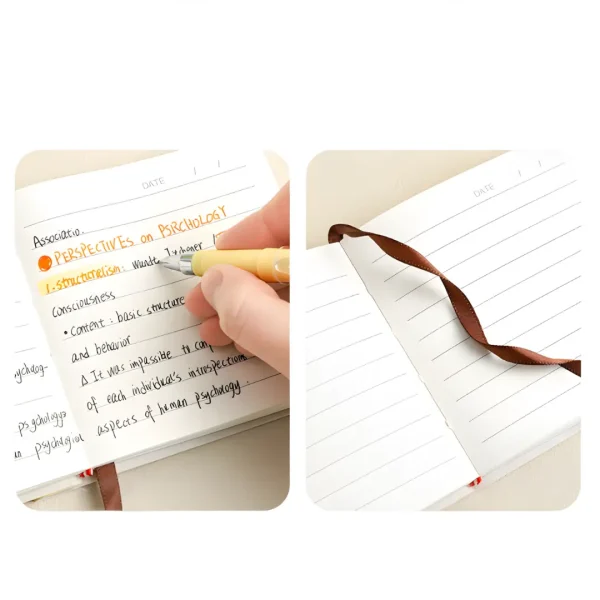 DATE / /
Associatio.
PERSPECTIVES on PSRCHOLOGY
1-structuralism: Wundt
consciousness
• content : basic structure
and behavior
Δ It was impassible to
of each individual's introspection
aspects of human psychology.
psychology
psychological
DATE / /